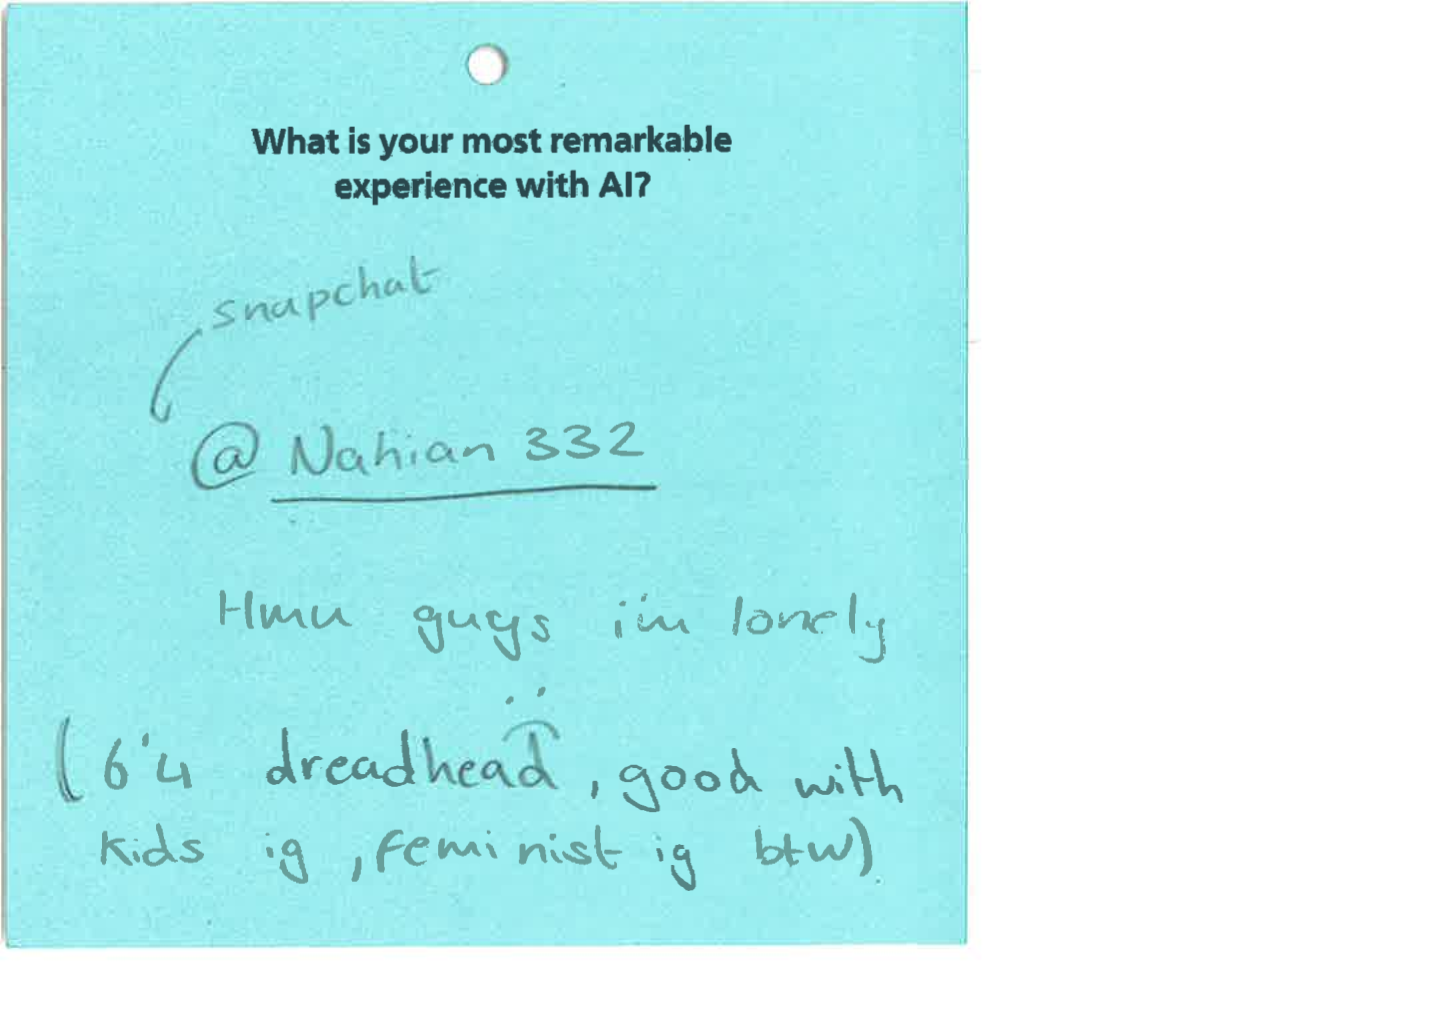 What is your most remarkable
experience with AI?
snapchat
@ Nahian 332
Hmu guys i'm lonely
(6'4 dreadhead, good with
kids ig, feminist ig btw)